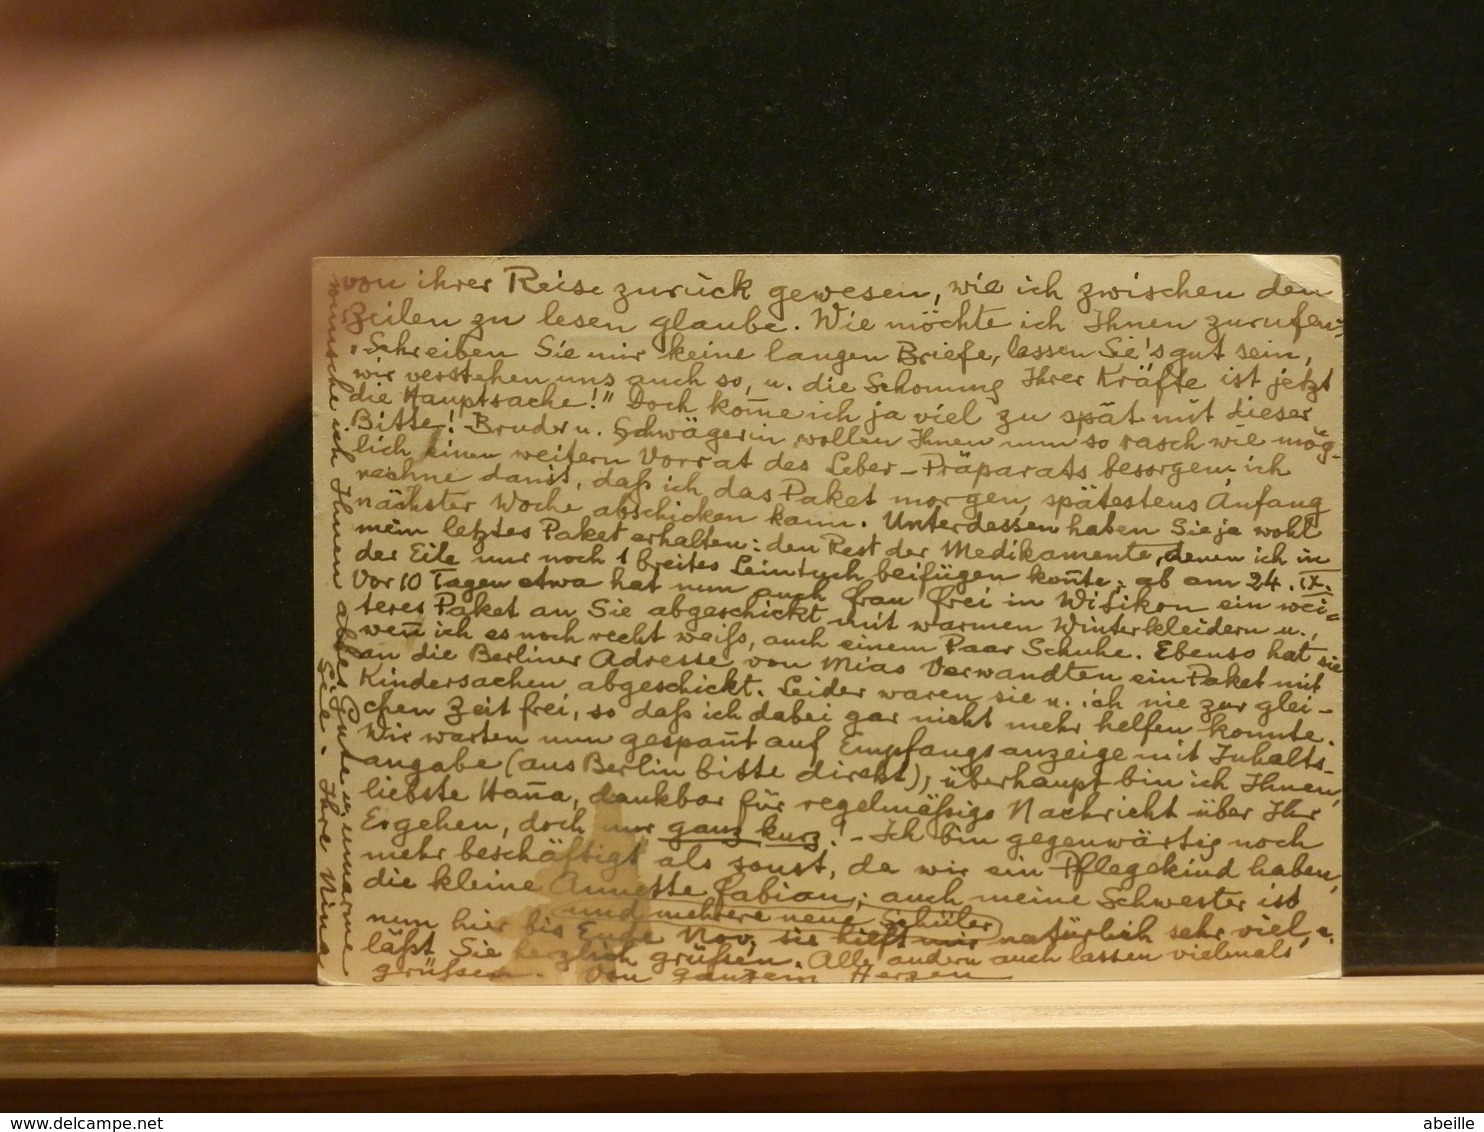 von ihrer Reise zurück gewesen, wie ich zwischen den
Zeilen zu lesen glaube. Wie möchte ich Ihnen zurufen:
„Schreiben Sie mir keine langen Briefe, lassen Sie's gut sein,
wir verstehen uns auch so, u. die Schonung Ihrer Kräfte ist jetzt
die Hauptsache!" Doch kom̄e ich ja viel zu spät mit dieser
Bitte! Bruder u. Schwägerin wollen Ihnen nun so rasch wie mög-
lich einen weitern Vorrat des Leber-Präparats besorgen; ich
rechne damit, daß ich das Paket morgen, spätestens Anfang
nächster Woche abschicken kann. Unterdessen haben Sie ja wohl
mein letztes Paket erhalten: den Rest der Medikamente, denen ich in
der Eile nur noch 1 breites Leintuch beifügen kon̄te; ab am 24. IX.
Vor 10 Tagen etwa hat nun auch Frau Frei in Witikon ein wei=
teres Paket an Sie abgeschickt mit warmen Winterkleidern u.,
wen̄ ich es noch recht weiß, auch einem Paar Schuhe. Ebenso hat sie
an die Berliner Adresse von Mias Verwandten ein Paket mit
Kindersachen abgeschickt. Leider waren sie u. ich nie zur glei-
chen Zeit frei, so daß ich dabei gar nicht mehr helfen konnte.
Wir warten nun gespan̄t auf Empfangsanzeige mit Inhalts-
angabe (aus Berlin bitte direkt); überhaupt bin ich Ihnen,
liebste Han̄a, dankbar für regelmäßige Nachricht über Ihr
Ergehen, doch nur ganz kurz! - Ich bin gegenwärtig noch
mehr beschäftigt als sonst, da wir ein Pflegekind haben,
die kleine Annette Fabian; auch meine Schwester ist
und mehrere neue Schüler
nun hier bis Ende Nov. sie hilft mir natürlich sehr viel, u.
läßt Sie herzlich grüßen. Alle andern auch lassen vielmals
grüßen. Von ganzem Herzen
wünsche ich Ihnen alles Gute u. umarme
Sie. Ihre Nina
delcampe.net
abeille